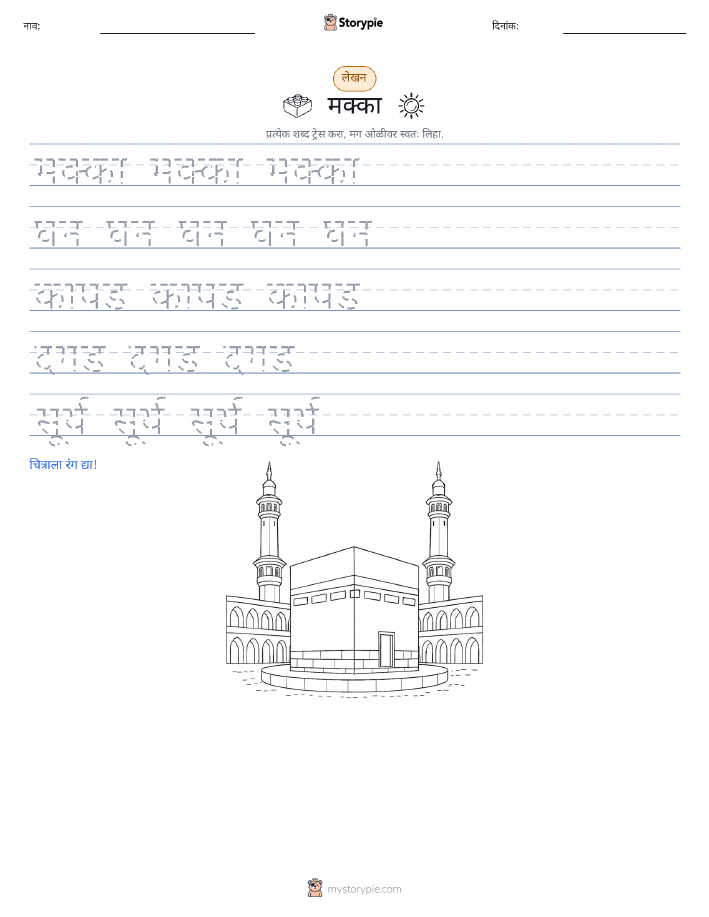 नाव: Storypie दिनांक:
लेखन
मक्का
प्रत्येक शब्द ट्रेस करा, मग ओळीवर स्वतः लिहा.
मक्का मक्का मक्का
घन घन घन घन घन
कापड कापड कापड
दगड दगड दगड
सूर्य सूर्य सूर्य सूर्य
चित्राला रंग द्या!
mystorypie.com